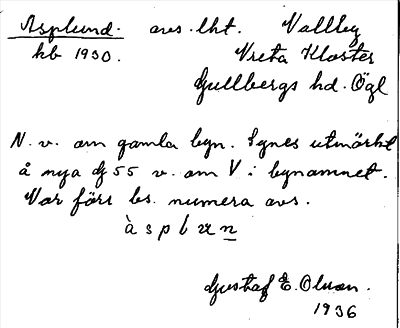 Asplund. avs. lht. Vallby
kb 1930. Vreta Kloster
Gullbergs hd. Ögl
N. v. om gamla byn. Synes utmärkt
å nya dj 55 v. om V i bynamnet.
Var förr bs. numera avs.
à s p l n
Gustaf E. Olson.
1936